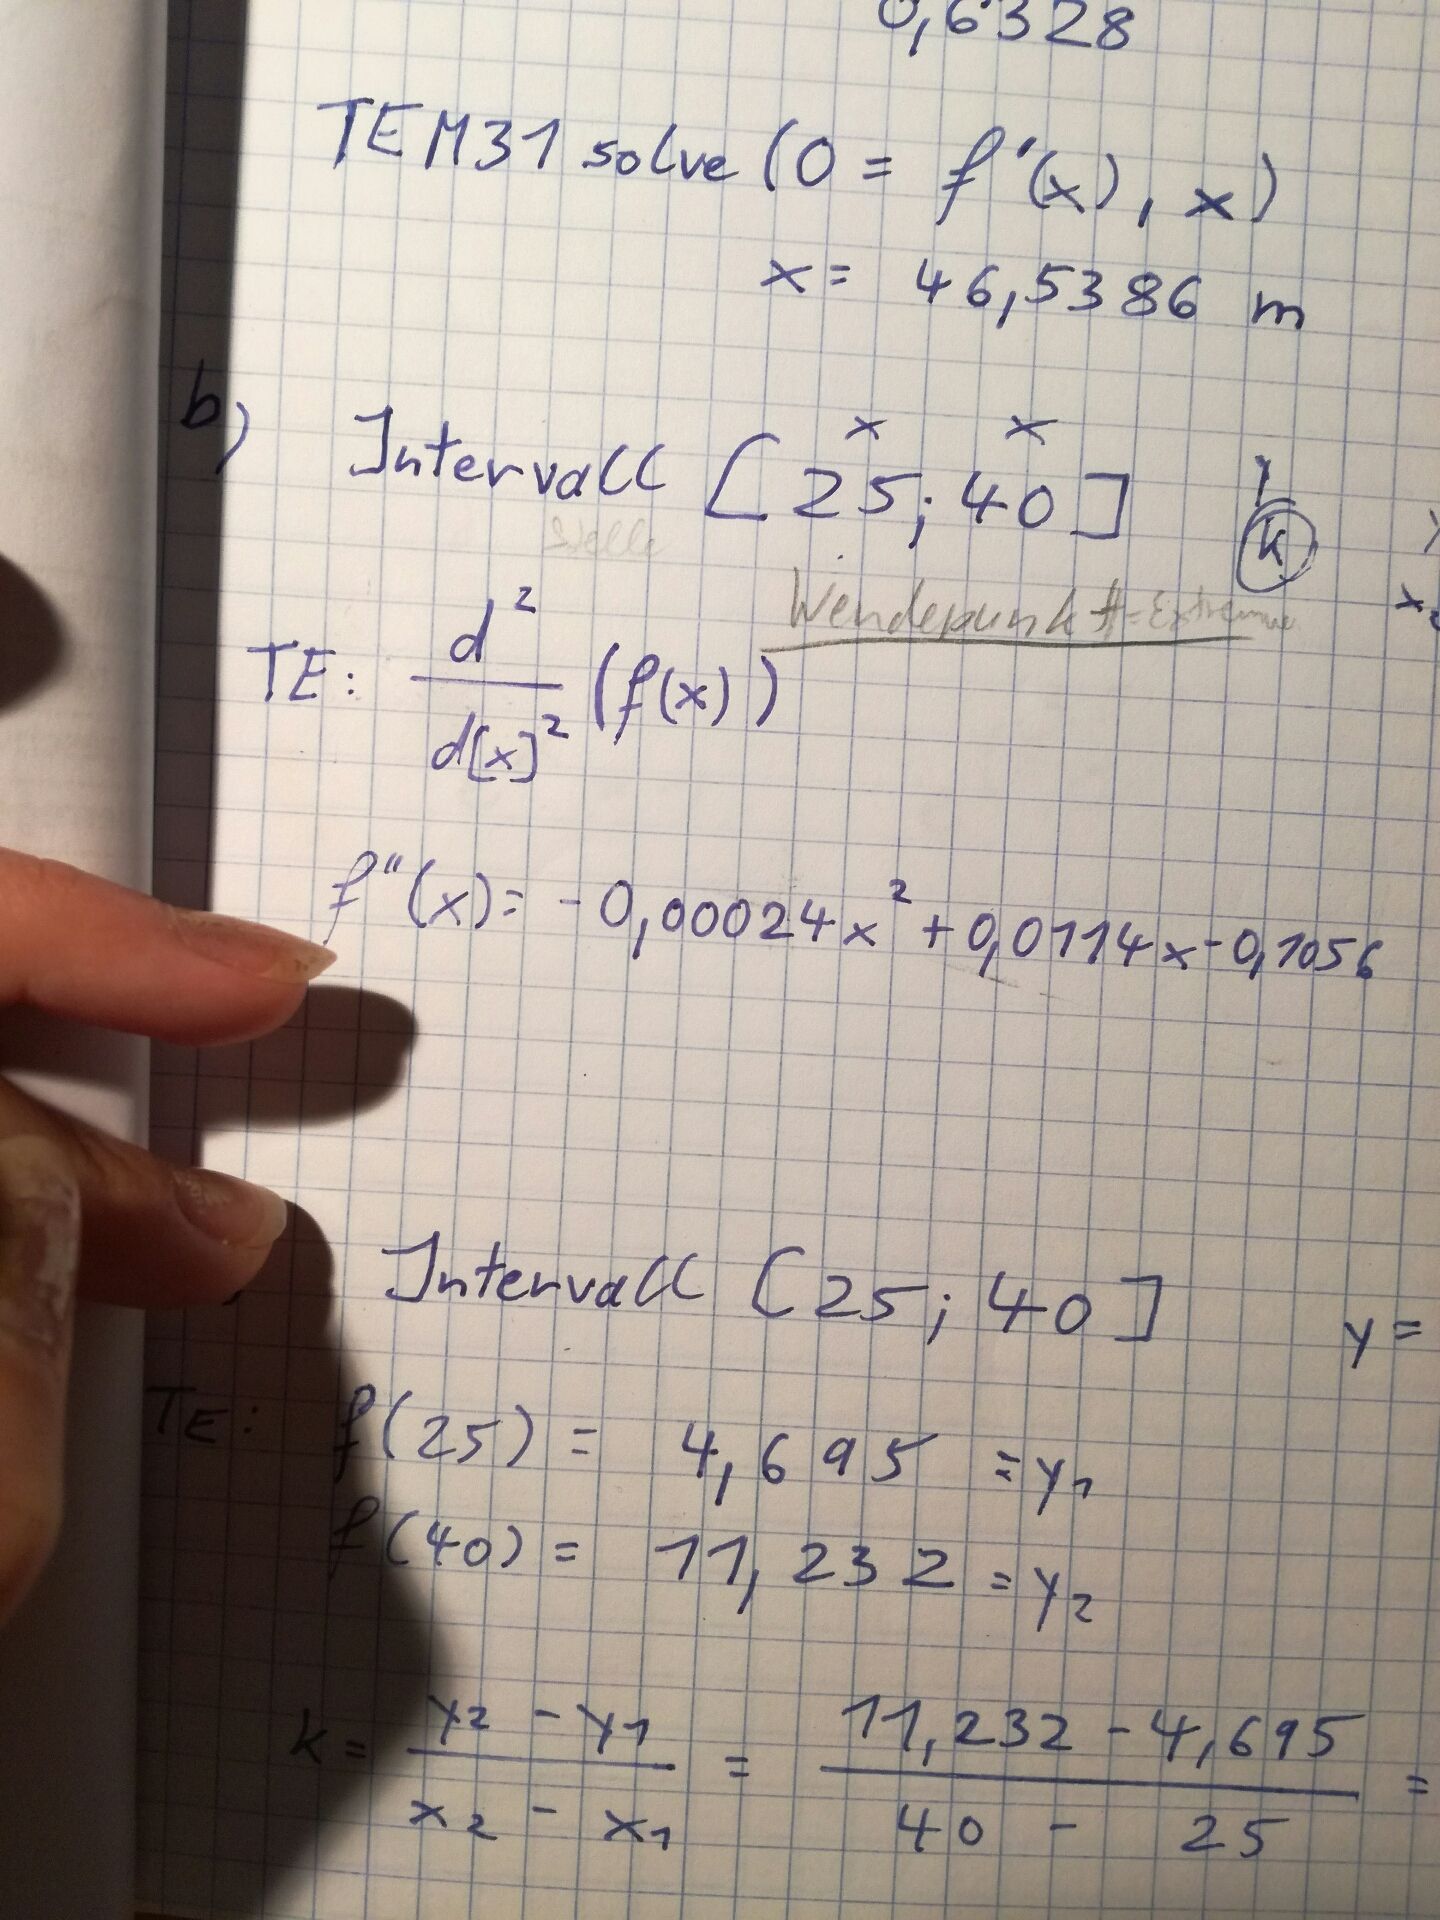 0,6328
TEM31 solve (0 = f'(x), x)
x = 46,5386 m
b) Intervall [25; 40]
x x
k
Stelle
x₂
Wendepunkt = Extremum
TE: d²/d[x]² (f(x))
f''(x) = -0,00024x² + 0,0114x - 0,1056
Intervall [25; 40]
y =
TE: f(25) = 4,695 = y₁
f(40) = 11,232 = y₂
k = y₂ - y₁ / x₂ - x₁ = 11,232 - 4,695 / 40 - 25 =